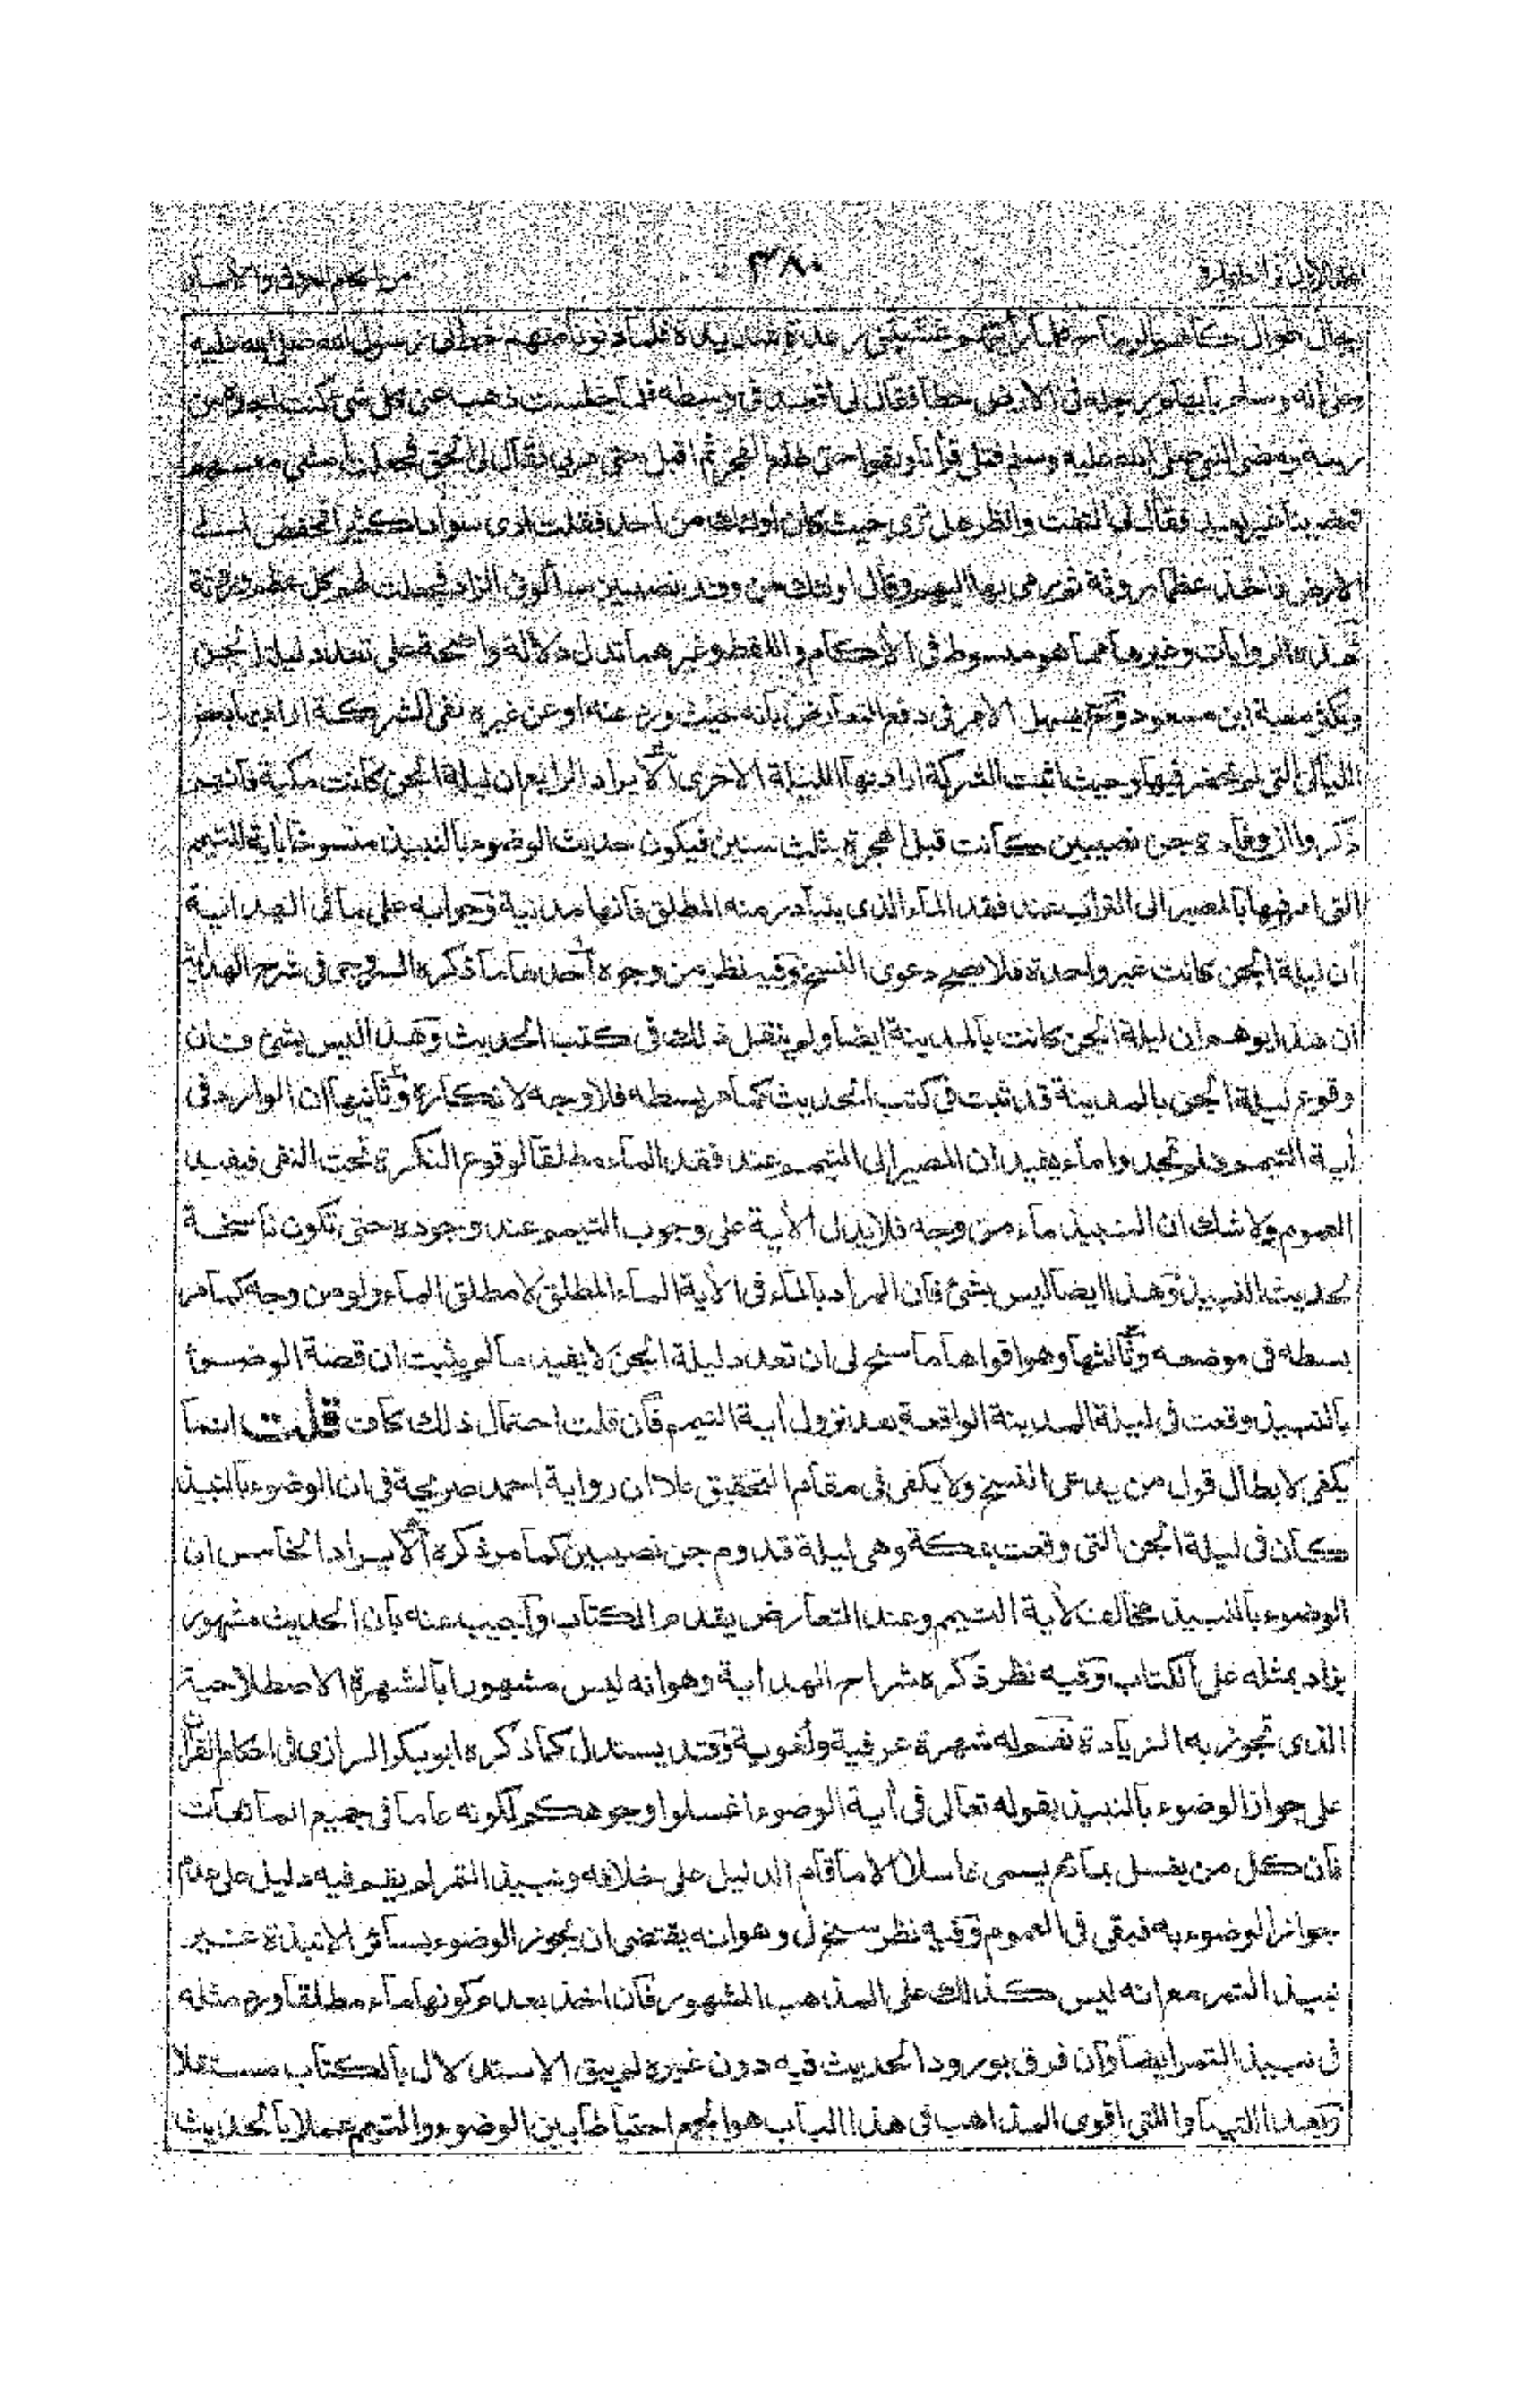 ٣٨٠
رجال طوال كانهم الرماح فلما رأيتهم غشيتني رعدة شديدة فلما دنونا منهم خط لي رسول الله صلى الله عليه
وعلى اله وسلم بابهام رجله في الارض خطا فقال لي اقعد في وسطه فلما جلست ذهب عني كل شئ كنت اجده من
ريبة ومضى النبي صلى الله عليه وسلم فتلى قرأنا وبقوا حتى طلع الفجر ثم اقبل حتى مر بي فقال لي الحق فجعلت امشي معه
فمضينا غير بعيد فقال لي التفت وانظر هل ترى حيث كان اولئك من احد فقلت ارى سوادا كثيرا فخفض الى
الارض فاخذ عظما وروثة ثم رمى بها اليهم وقال اولئك من وفد نصيبين سألوني الزاد فجعلت لهم كل عظم وروثة
فهذه الروايات وغيرها مما هو مبسوط في الأكام واللقط وغيرهما تدل دلالة واضحة على تعدد ليلة الجن
ابن مسعود وح يسهل الامر في دفع التعارض بانه حيث ورد عنه او عن غيره نفى الشركة اراد بها بعض
الليالي التي لم يحضر فيها وحيث اثبت الشركة اراد بها الليلة الاخرى الايراد الرابع ان ليلة الجن كانت مكية فانهم
ذكروا ان وفادة جن نصيبين كانت قبل الهجرة بثلث سنين فيكون حديث الوضوء بالنبيذ منسوخا بأية التيمم
التي امر فيها بالمصير الى التراب عند فقد الماء الذي يتبادر منه المطلق فانها مدنية وجوابه على ما في الهداية
ان ليلة الجن كانت غير واحدة فلا يصح دعوى النسخ وفيه نظر من وجوه احدها ما ذكره السروجي في شرح الهداية
ان هذا يوهم ان ليلة الجن كانت بالمدينة ايضا ولم ينقل ذلك في كتب الحديث وهذا ليس بشئ فان
وقوع ليلة الجن بالمدينة قد ثبت في كتب الحديث كما مر بسطه فلا وجه لانكاره وثانيها ان الوارد في
أية التيمم ولم تجدوا ماء يفيد ان المصير الى التيمم عند فقد الماء مطلقا لوقوع النكرة تحت النفى فيفيد
العموم ولا شك ان النبيذ ماء من وجه فلا يدل الأية على وجوب التيمم عند وجوده حتى تكون ناسخة
لحديث النبيذ وهذا ايضا ليس بشئ فان المراد بالماء في الأية الماء المطلق لا مطلق الماء ولو من وجه كما مر
بسطه في موضعه وثالثها وهو اقواها ما سنح لي ان تعدد ليلة الجن لا يفيد ما لم يثبت ان قصة الوضوء
بالنبيذ وقعت في ليلة المدينة الواقعة بعد نزول أية التيمم فان قلت احتمال ذلك كاف قلت انما
يكفى لابطال قول من يدعى النسخ ولا يكفى في مقام التحقيق علا ان رواية احمد صريحة في ان الوضوء بالنبيذ
كان في ليلة الجن التي وقعت بمكة وهي ليلة قدوم جن نصيبين كما مر ذكره الايراد الخامس ان
الوضوء بالنبيذ مخالف لأية التيمم وعند التعارض يقدم الكتاب واجيب عنه بان الحديث مشهور
يزاد بمثله على الكتاب وفيه نظر ذكره شراح الهداية وهو انه ليس مشهورا بالشهرة الاصطلاحية
الذي تجوز به الزيادة نعم له شهرة عرفية ولغوية وقد يستدل كما ذكره ابو بكر الرازى في احكام القرأن
على جواز الوضوء بالنبيذ بقوله تعالى في أية الوضوء اغسلوا وجوهكم لكونه عاما في جميع المائعات
فان كل من يغسل بمائع يسمى غاسلا الا ما قام الدليل على خلافه ونبيذ التمر لم يقم فيه دليل على عدم
جواز الوضوء به فبقى في العموم وفيه نظر سنح لي وهو انه يقتضى ان يجوز الوضوء بسائر الانبذة غير
نبيذ التمر مع انه ليس كذلك على المذهب المشهور فان اخذ بعدم كونها ماء مطلقا ورد مثله
في نبيذ التمر ايضا وان فرق بورود الحديث فيه دون غيره لم يبق الاستدلال بالكتاب مستقلا
وبهذا التبيا واللتي اقوى المذاهب في هذا الباب هو الجمع احتياطا بين الوضوء والتيمم عملا بالحديث